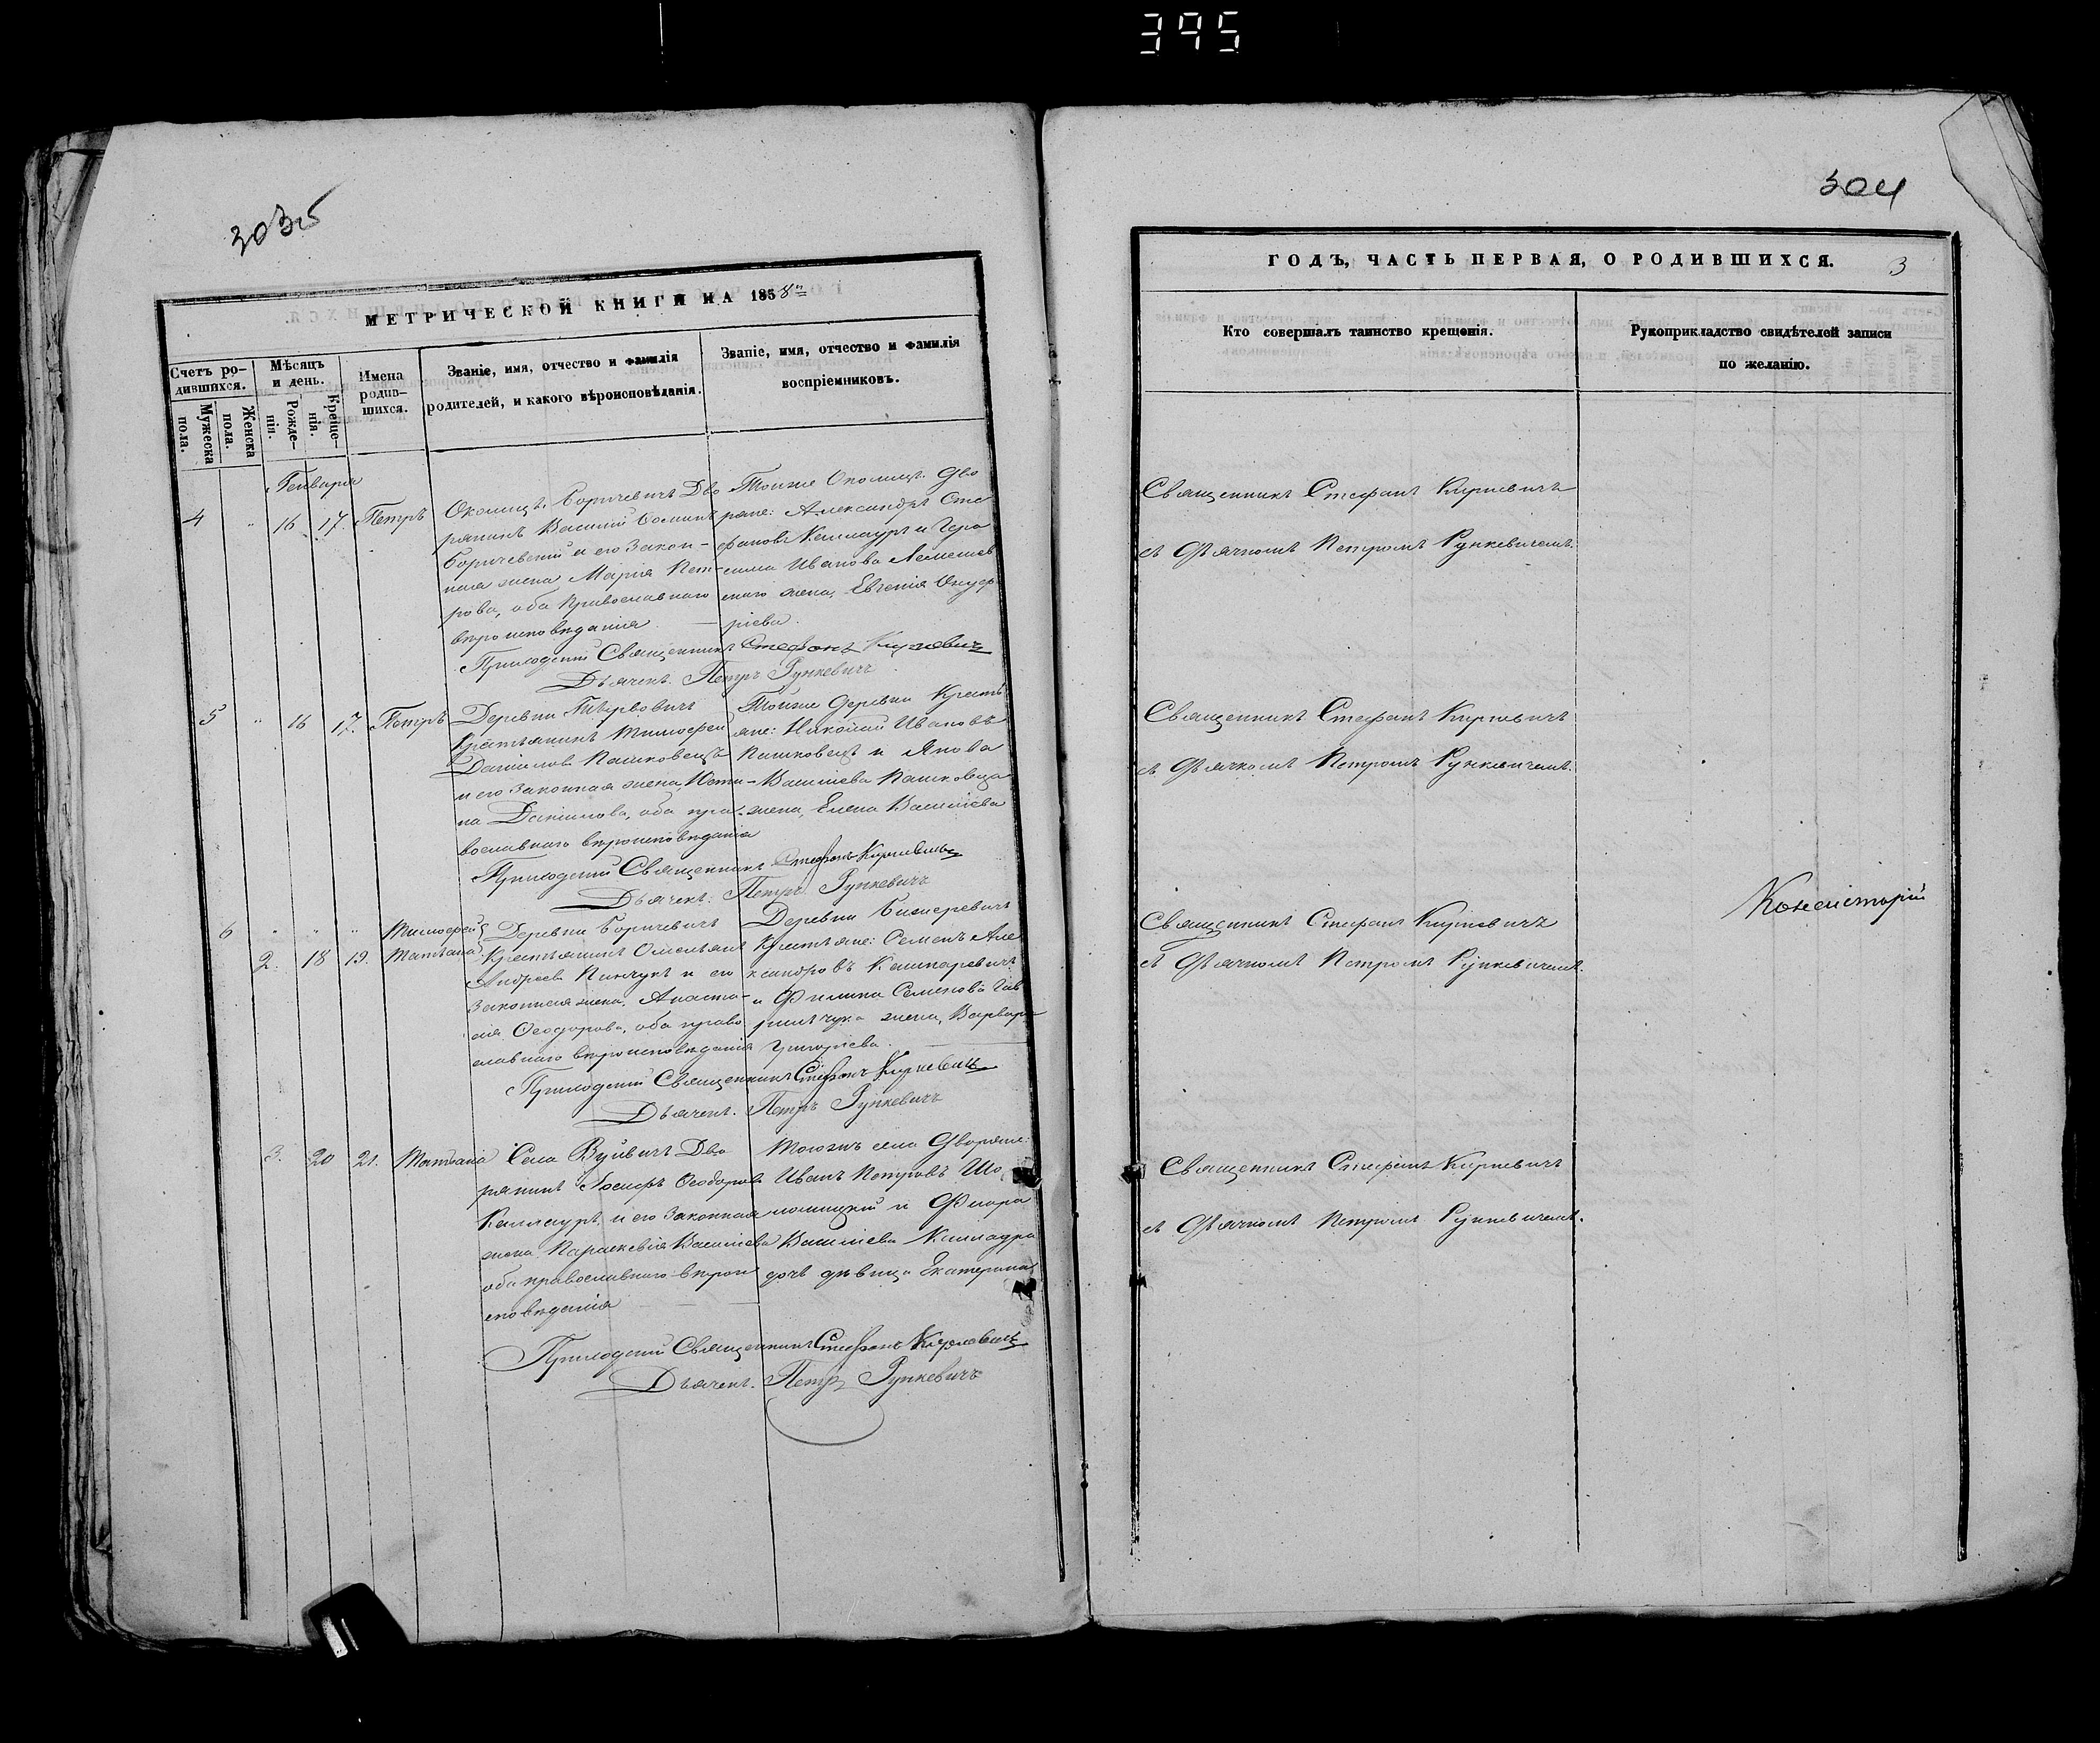 395
303об
304
МЕТРИЧЕСКОЙ КНИГИ НА 1858й
Счетъ ро-
дившихся.
Мужеска
пола.
Женска
пола.
Мѣсяцъ
и день.
Рожде-
нія.
Креще-
нія.
Имена
родив-
шихся.
Званіе, имя, отчество и фамилія
родителей, и какого вѣроисповѣданія.
Званіе, имя, отчество и фамилія
воспріемниковъ.
Генваря
4 " 16 17. Петръ
Околицъ Боричевичъ Дво
рянинъ Василій Фоминъ
Боричевскій и его закон-
ная жена Марія Пет-
рова, оба православнаго
вѣроисповѣданія
Тойже Околицы Дво
ряне: Александръ Сте
фановъ Келлауръ и Гера
сима Иванова Лемешев
скаго жена, Евгенія Онуф-
ріева.
Приходскій Священникъ Стефанъ Киркевичъ
Дьячекъ Петръ Рункевичъ
5 " 16 17. Петръ
Деревни Тивровичъ
Крестьянинъ Тимофей
Даниловъ Пашковецъ
и его законная жена, Юсти-
на Данилова, оба пра-
вославнаго вѣроисповѣданія
Тойже деревни Кресть
яне: Николай Ивановъ
Пашковецъ и Якова
Васильева Пашковца
жена, Елена Васильева
Приходскій Священникъ Стефанъ Киркевичъ
Дьячекъ: Петръ Рункевичъ
6 " " " Тимофей
2. 18 19. Татьяна
Деревни Боричевичъ
Крестьянинъ Омельянъ
Андреевъ Пинчукъ и его
законная жена, Анаста-
сія Ѳеодорова, оба право
славнаго вѣроисповѣданія
Деревни Бижеревичъ
Крестьяне: Семенъ Але
ксандровъ Каспаревичъ
и Филипа Семенова Гав
рильчука жена, Варвара
Григорьева.
Приходскій Священникъ Стефанъ Киркевичъ
Дьячекъ. Петръ Рункевичъ
3. 20 21. Татьяна
Села Вуйвичъ Дво
рянинъ Іосифъ Ѳеодоровъ
Келлауръ, и его законная
жена Параскевія Васильева
оба православнаго вѣрои
сповѣданія
Тогожъ села Дворяне:
Иванъ Петровъ Шо
ломицкій и Флора
Васильева Келлаура
дочь дѣвица Екатерина
Приходскій Священникъ Стефанъ Киркевичъ
Дьячекъ. Петръ Рункевичъ
ГОДЪ, ЧАСТЬ ПЕРВАЯ, О РОДИВШИХСЯ. 3
Кто совершалъ таинство крещенія.
Рукоприкладство свидѣтелей записи
по желанію.
Священникъ Стефанъ Киркевичъ
съ Дьячкомъ Петромъ Рункевичемъ.
Священникъ Стефанъ Киркевичъ
съ Дьячкомъ Петромъ Рункевичемъ.
Консисторій
Священникъ Стефанъ Киркевичъ
съ Дьячкомъ Петромъ Рункевичемъ.
Священникъ Стефанъ Киркевичъ
съ Дьячкомъ Петромъ Рункевичемъ.